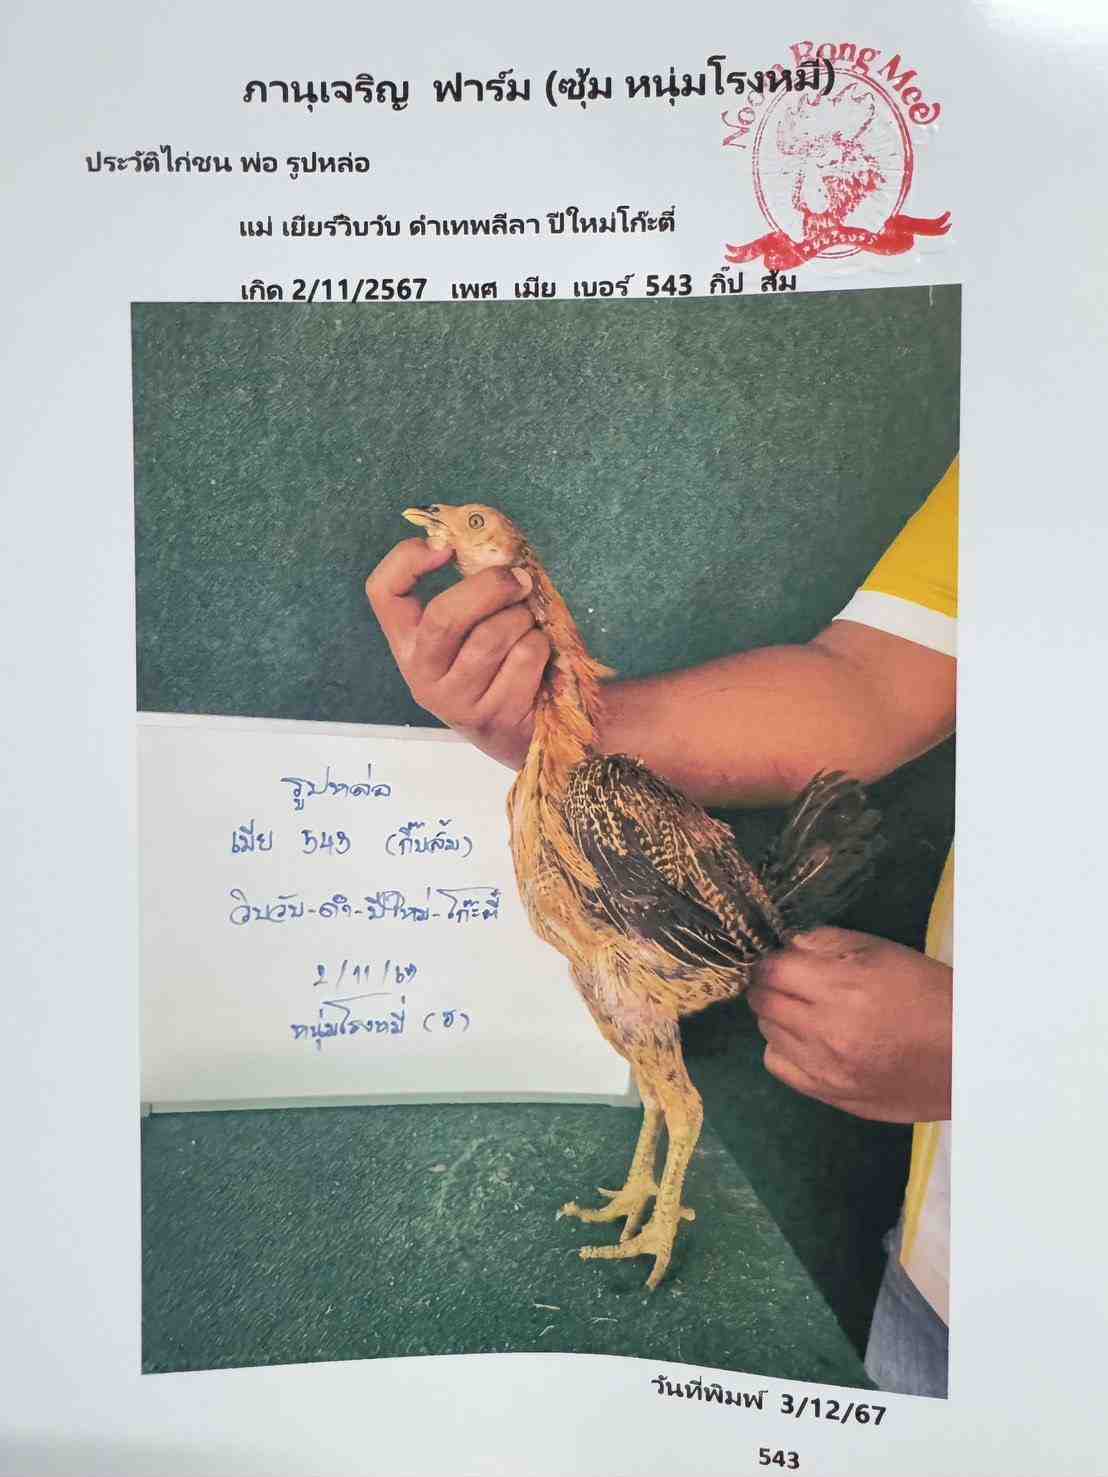 ภานุเจริญ ฟาร์ม (ซุ้ม หนุ่มโรงหมี)
Noom Rong Mee
หนุ่มโรงหมี
ประวัติไก่ชน พ่อ รูปหล่อ
แม่ เยียร์วิบวับ ดำเทพลีลา ปีใหม่โก๊ะตี๋
เกิด 2/11/2567 เพศ เมีย เบอร์ 543 กิ๊ป ส้ม
รูปหล่อ
เมีย 543 (กิ๊บส้ม)
วิบวับ-ดำ-ปีใหม่-โก๊ะตี๋
2/11/67
หนุ่มโรงหมี (ช)
วันที่พิมพ์ 3/12/67
543